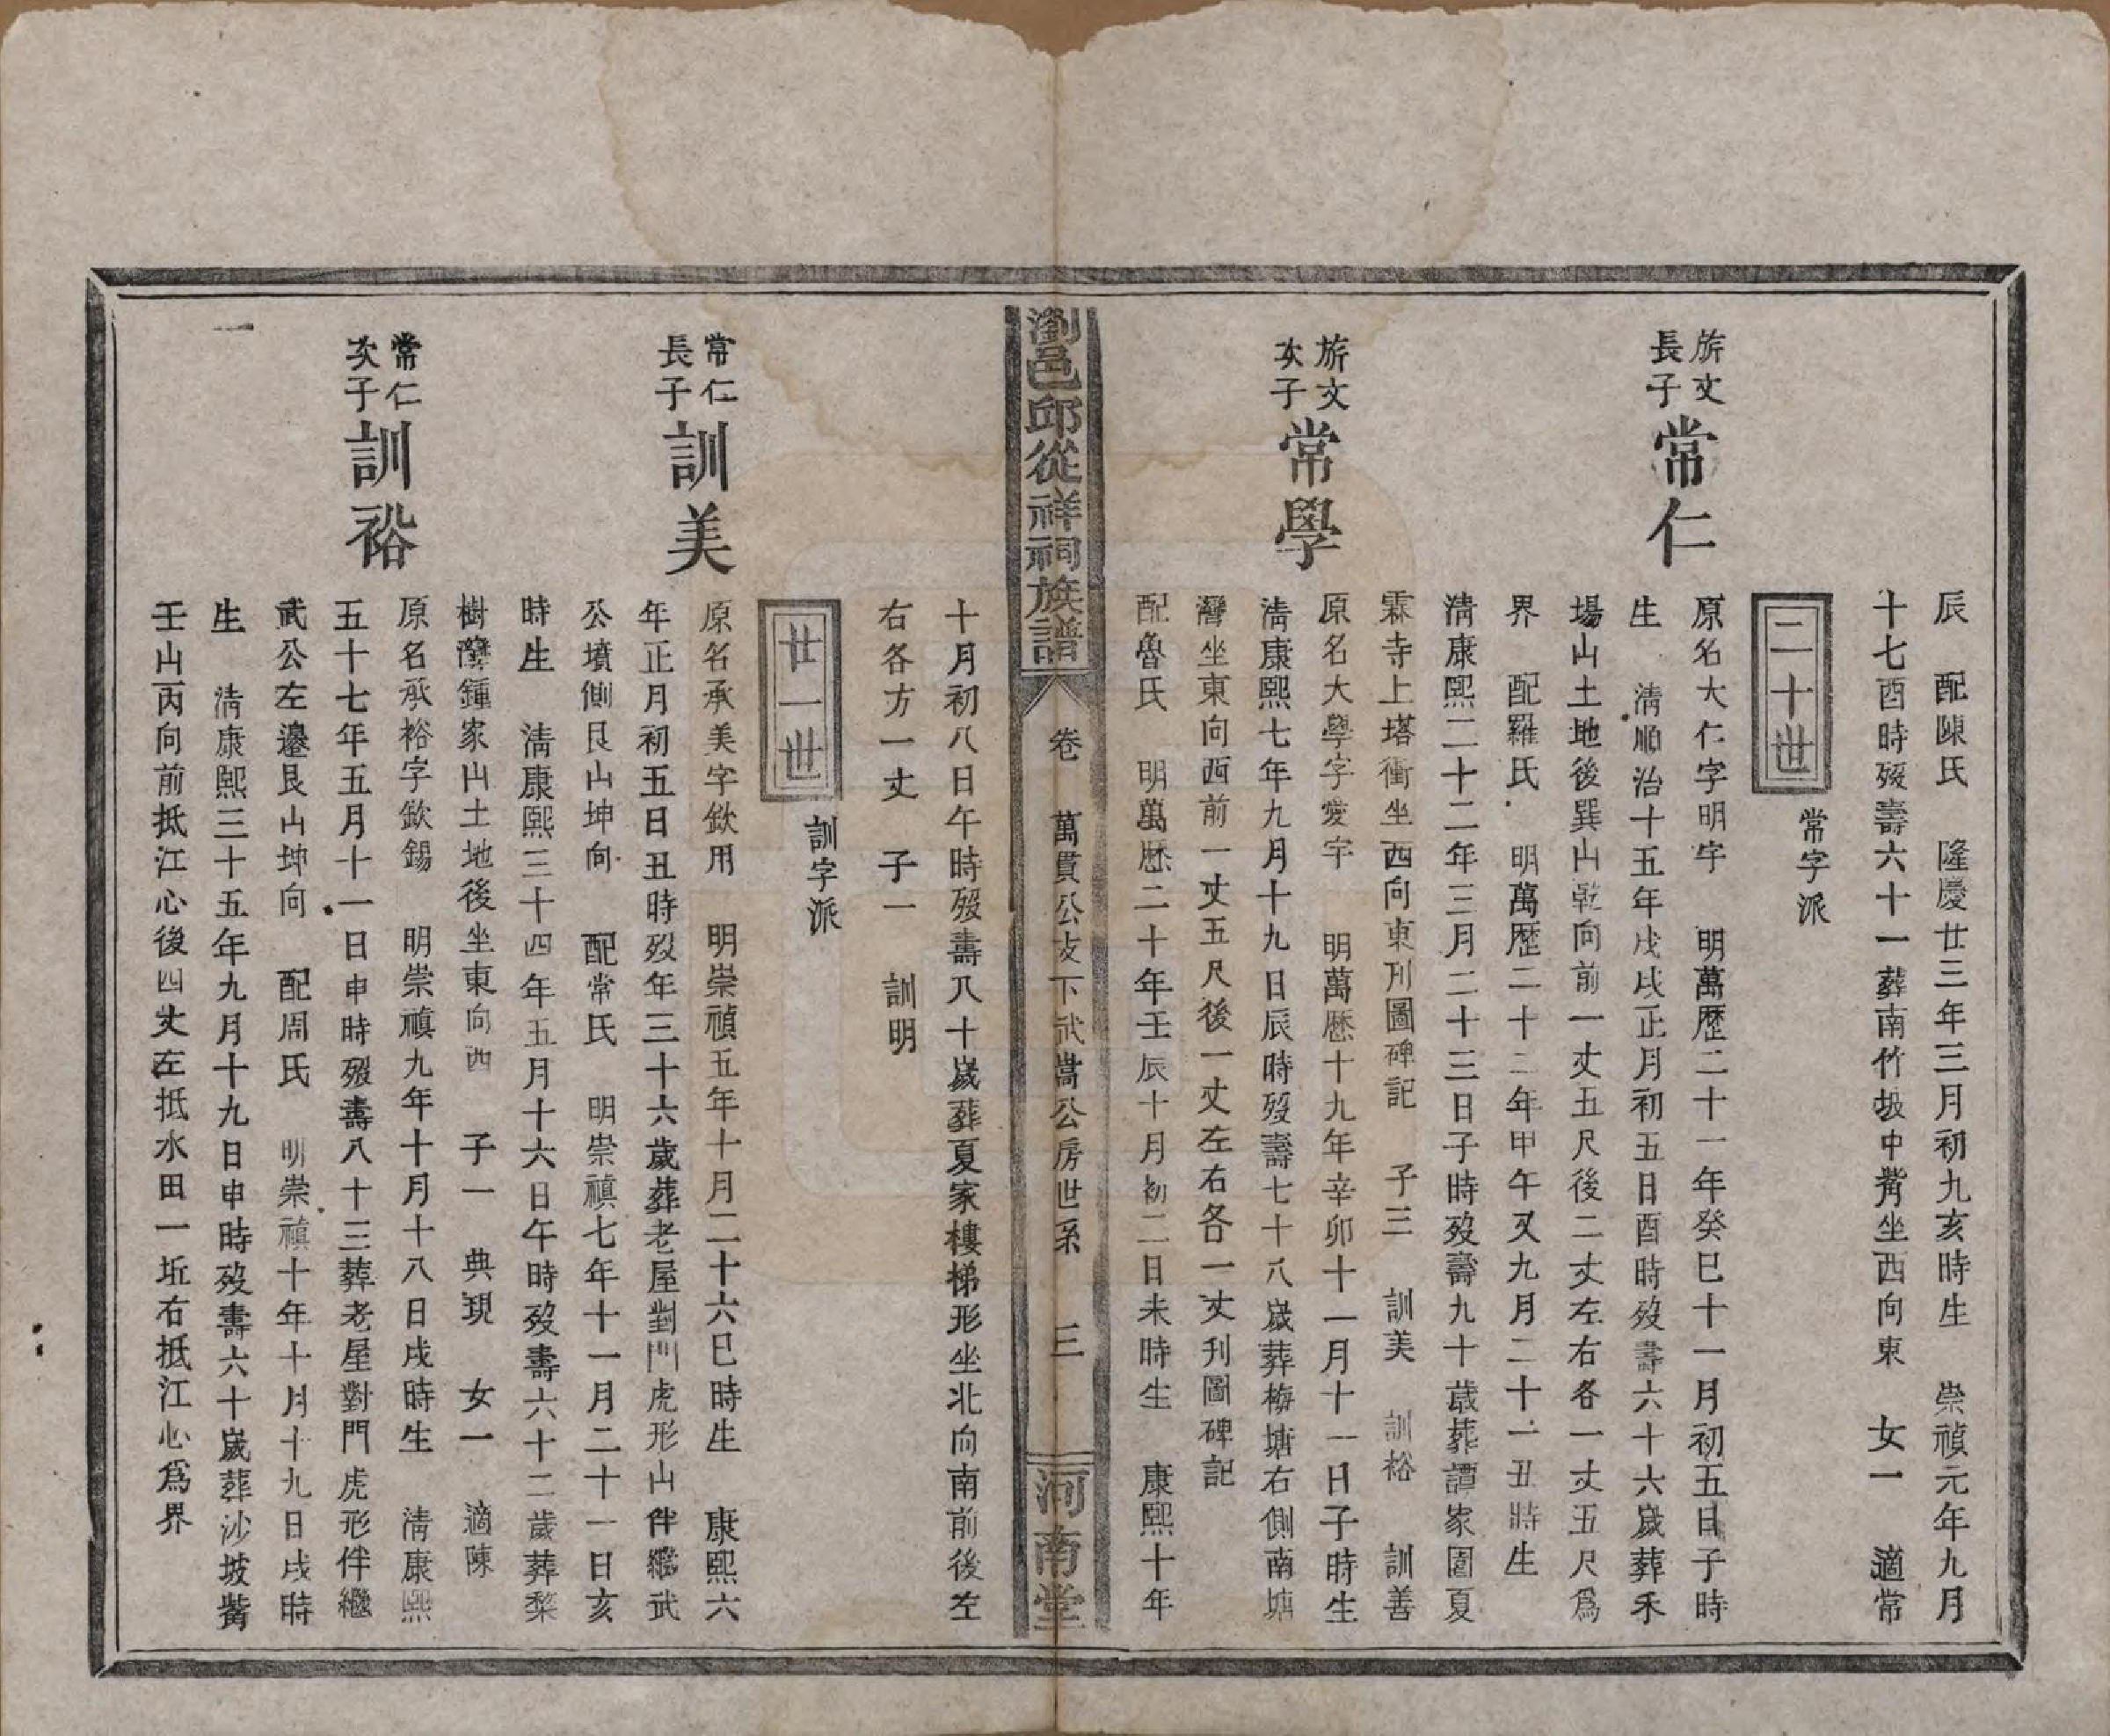 辰　配陳氏　隆慶廿三年三月初九亥時生　崇禎元年九月
十七酉時殁壽六十一葬南竹坡中觜坐西向東　女一　適常
二十世　常字派
旂文長子　常仁
原名大仁字明宇　明萬歷二十一年癸巳十一月初五日子時
生　清順治十五年戊戌正月初五日酉時殁壽六十六歲葬禾
場山土地後巽山乾向前一丈五尺後二丈左右各一丈五尺爲
界　配羅氏　明萬歷二十二年甲午又九月二十一丑時生
清康熙二十二年三月二十三日子時殁壽九十歲葬譚家園夏
霖寺上塔衝坐西向東刊圖碑記　子三　訓美　訓裕　訓善
旂文次子　常學
原名大學字愛宇　明萬歷十九年辛卯十一月十一日子時生
清康熙七年九月十九日辰時殁壽七十八歲葬梅塘右側南塘
灣坐東向西前一丈五尺後一丈左右各一丈刊圖碑記
配魯氏　明萬歷二十年壬辰十月初二日未時生　康熙十年
瀏邑邱從祥祠族譜　卷　萬貫公支下武嵩公房世系　三　河南堂
十月初八日午時殁壽八十歲葬夏家樓梯形坐北向南前後左
右各方一丈　子一　訓明
廿一世　訓字派
常仁長子　訓美
原名承美字欽用　明崇禎五年十月二十六巳時生　康熙六
年正月初五日丑時殁年三十六歲葬老屋對門虎形山伴繼武
公墳側艮山坤向　配常氏　明崇禎七年十一月二十一日亥
時生　清康熙三十四年五月十六日午時殁壽六十二歲葬棃
樹灣鍾家山土地後坐東向西　子一　典現　女一　適陳
常仁次子　訓裕
原名承裕字欽錫　明崇禎九年十月十八日戌時生　清康熙
五十七年五月十一日申時殁壽八十三葬老屋對門虎形伴繼
武公左邊艮山坤向　配周氏　明崇禎十年十月十九日戌時
生　清康熙三十五年九月十九日申時殁壽六十歲葬沙坡觜
壬山丙向前抵江心後四丈左抵水田一坵右抵江心爲界